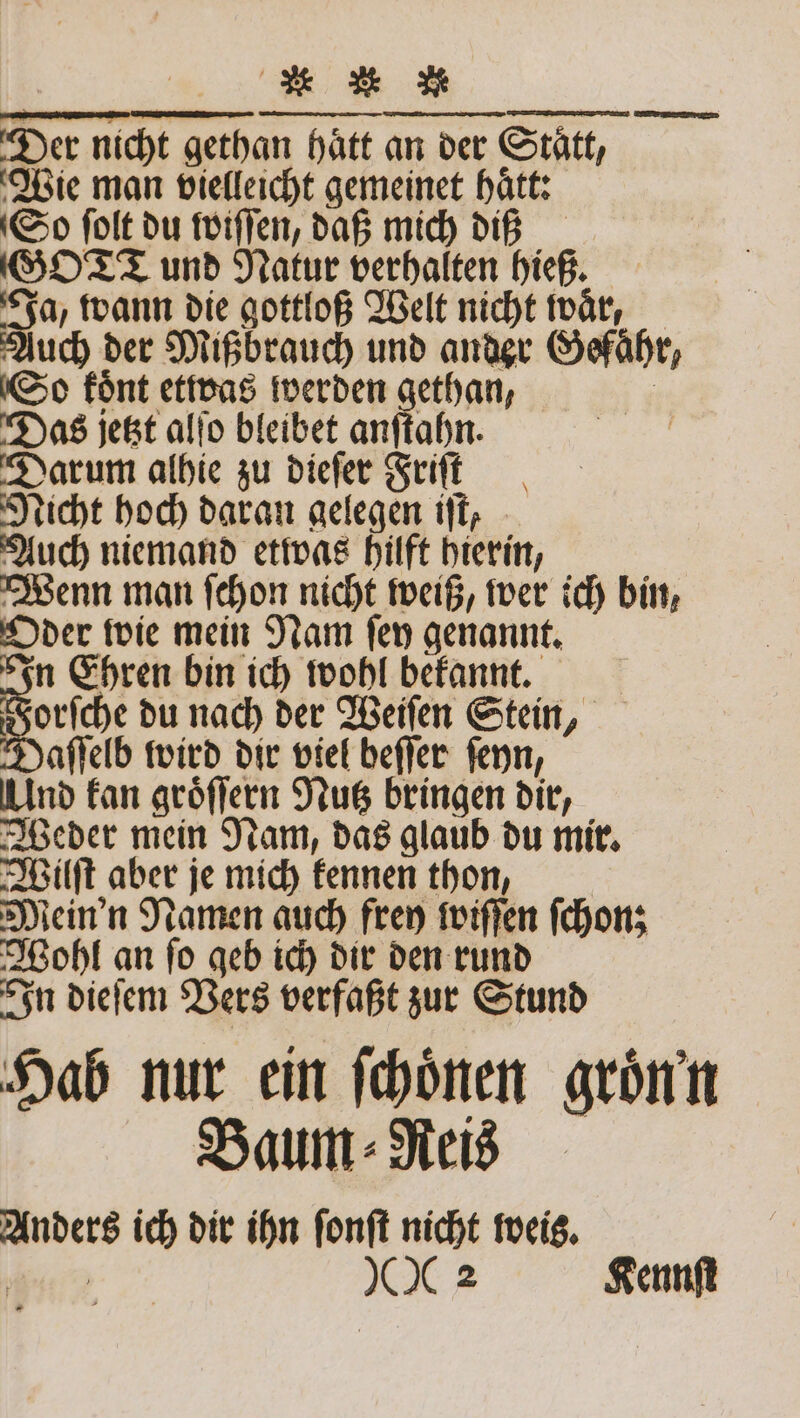 Der nicht gethan haͤtt an der Staͤtt,
Wie man vielleicht gemeinet haͤtt:
So ſolt du wiſſen, daß mich diß
GOTT und Natur verhalten hieß.
Ja, wann die gottloß Welt nicht waͤr,
Auch der Mißbrauch und ander Gefaͤhr,
So koͤnt etwas werden gethan,
Das jetzt alſo bleibet anſtahn.
Darum alhie zu dieſer Friſt
Nicht hoch daran gelegen iſt,
Auch niemand etwas hilft hierin,
Wenn man ſchon nicht weiß, wer ich bin,
Oder wie mein Nam ſey genannt.
In Ehren bin ich wohl bekannt.
Forſche du nach der Weiſen Stein,
Daſſelb wird dir viel beſſer ſeyn,
Und kan groͤſſern Nutz bringen dir,
Weder mein Nam, das glaub du mir.
Wilſt aber je mich kennen thon,
Mein'n Namen auch frey wiſſen ſchon;
Wohl an ſo geb ich dir den rund
In dieſem Vers verfaßt zur Stund
Hab nur ein ſchoͤnen groͤn'n
Baum-Reis
Anders ich dir ihn ſonſt nicht weis.
)( )( 2 Kennſt